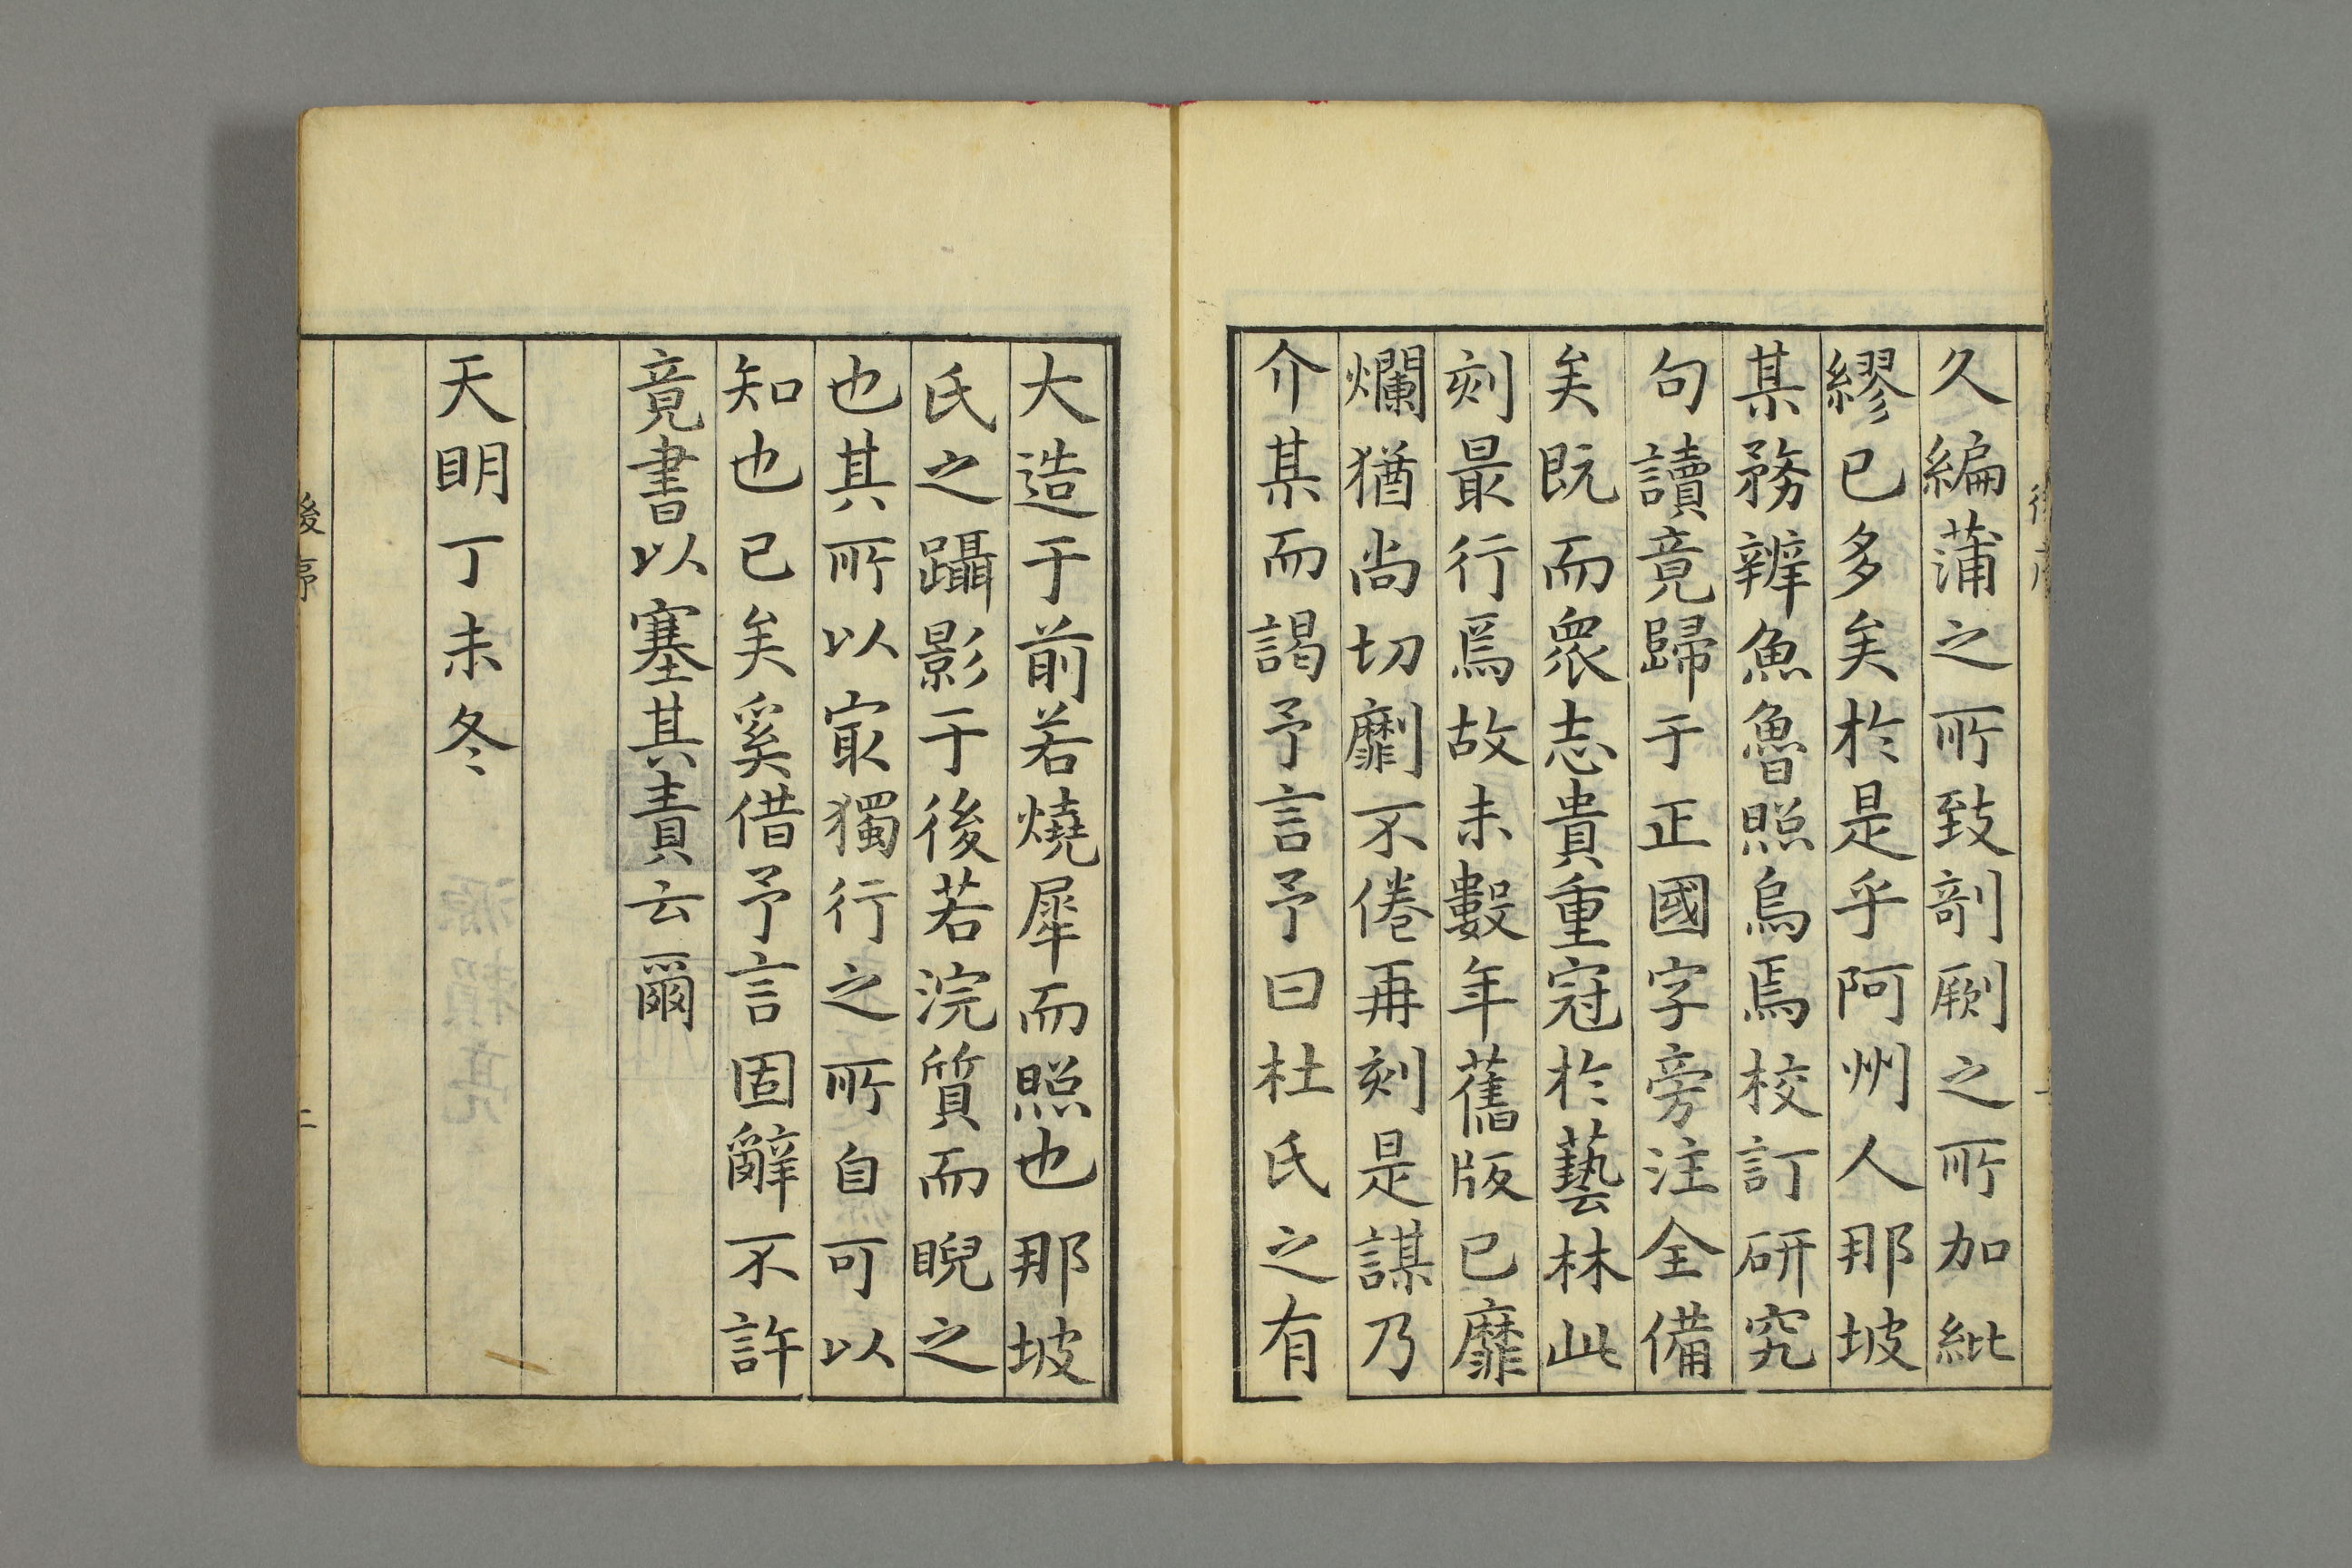 久編蒲之所致剞劂之所加紕
繆已多矣於是乎阿州人那坡
某務辨魚魯照烏焉校訂研究
句讀竟歸于正國字旁注全備
矣既而眾志貴重冠於藝林此
刻最行焉故未數年舊版已靡
爛猶尚切劘不倦再刻是謀乃
介某而謁予言予曰杜氏之有
大造于前若燒犀而照也那坡
氏之躡影于後若浣質而睨之
也其所以冣獨行之所自可以
知也已矣奚借予言固辭不許
竟書以塞其責云爾
天明丁未冬
後序
二